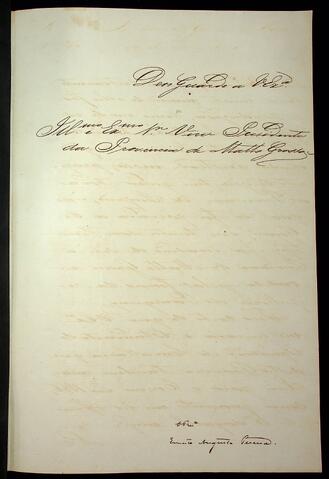 Deos Guarde a V Exª
Illmo e Exmo Snr Vice Presidente
da Provincia de Matto Grosso
Augusto